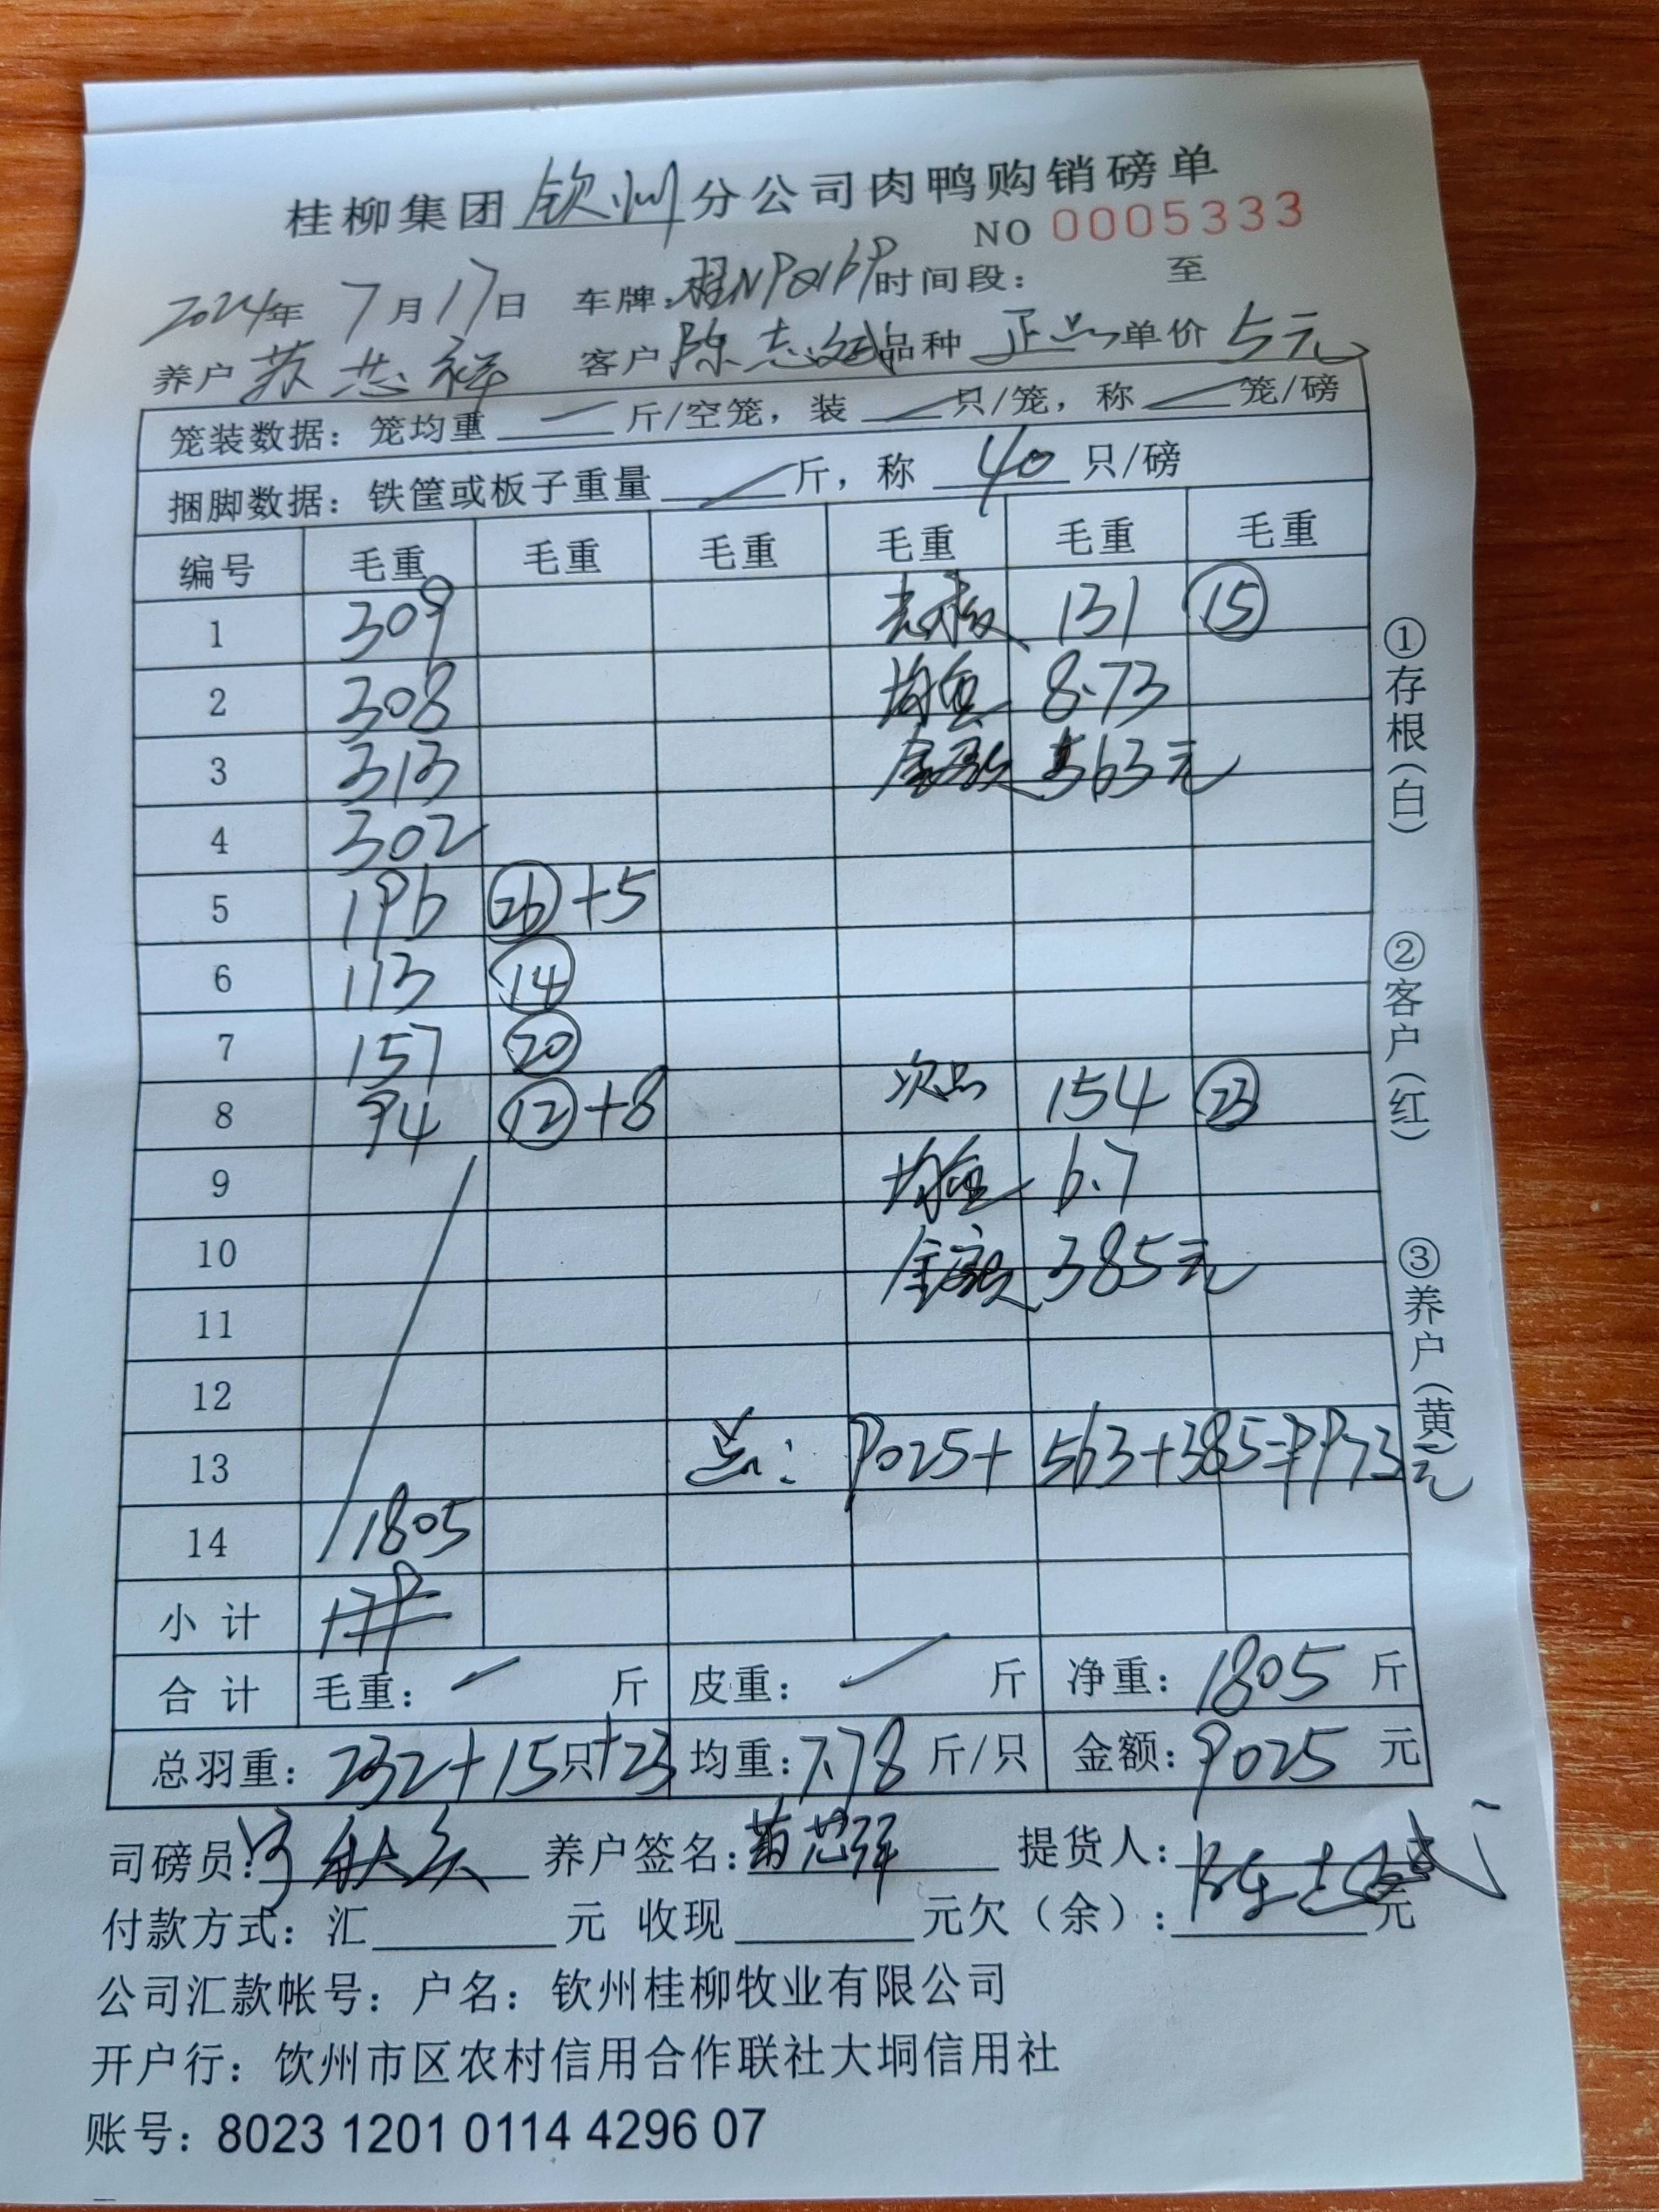 桂柳集团 钦州 分公司肉鸭购销磅单
NO 0005333
2024年 7月17日 车牌: 桂NP0169 时间段: 至
养户 苏芯祥 客户 陈志斌 品种 正品 单价 5元
笼装数据: 笼均重 — 斤/空笼, 装 — 只/笼, 称 — 笼/磅
捆脚数据: 铁筐或板子重量 — 斤, 称 40 只/磅
编号 毛重 毛重 毛重 毛重 毛重 毛重
1 309 131 ⑮
2 308 均重 8.73
3 313 金额 563元
4 302
5 196 ㉖+5
6 113 ⑭
7 157 ⑳
8 94 ⑫+8 次品 154 ㉓
9 均重 6.7
10 金额 385元
11
12
13 总: 9025+563+385=9973元
14 1805
小计
合计 毛重: — 斤 皮重: — 斤 净重: 1805 斤
总羽重: 232+15只+23 均重: 7.78 斤/只 金额: 9025 元
司磅员: 养户签名: 苏芯祥 提货人: 陈志斌
付款方式: 汇 元 收现 元欠(余): 元
公司汇款帐号: 户名: 钦州桂柳牧业有限公司
开户行: 饮州市区农村信用合作联社大垌信用社
账号: 8023 1201 0114 4296 07
①存根(白)
②客户(红)
③养户(黄)